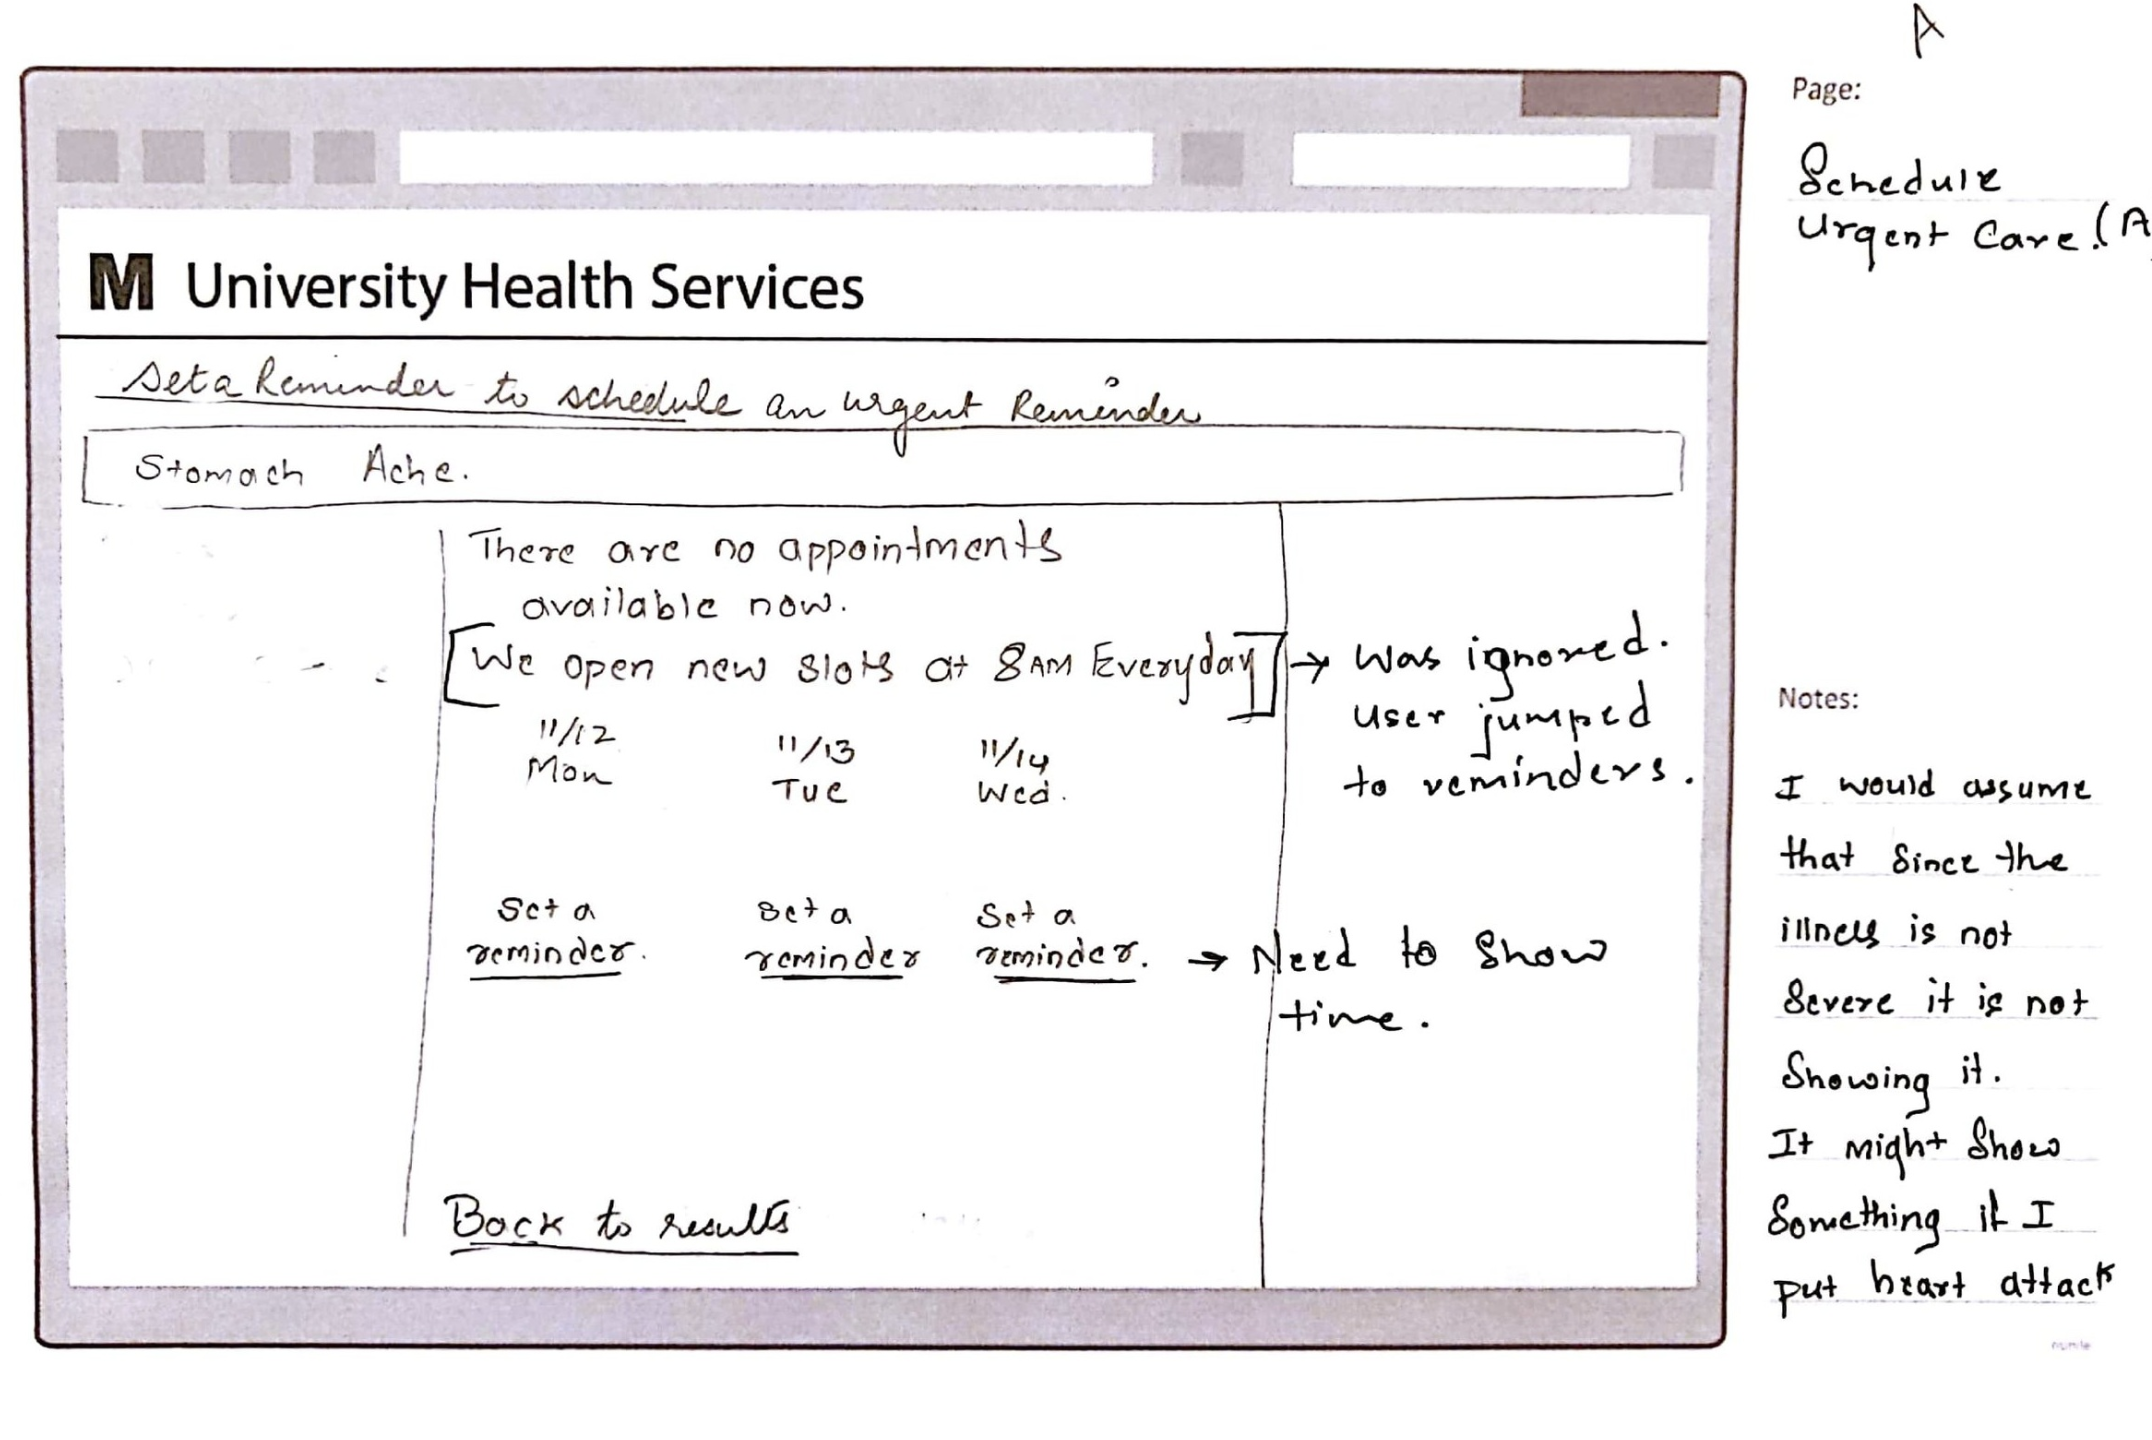 A
Page:
Schedule
Urgent Care! (A
M University Health Services
Set a Reminder to schedule an urgent Reminder
Stomach Ache.
There are no appointments
available now.
[We open new slots at 8AM Everyday] → Was ignored.
User jumped
to reminders.
11/12 11/13 11/14
Mon Tue Wed.
Set a Set a Set a
reminder. reminder reminder. → Need to Show
time.
Back to results
Notes:
I would assume
that Since the
illness is not
Severe it is not
Showing it.
It might Show
Something if I
put heart attack